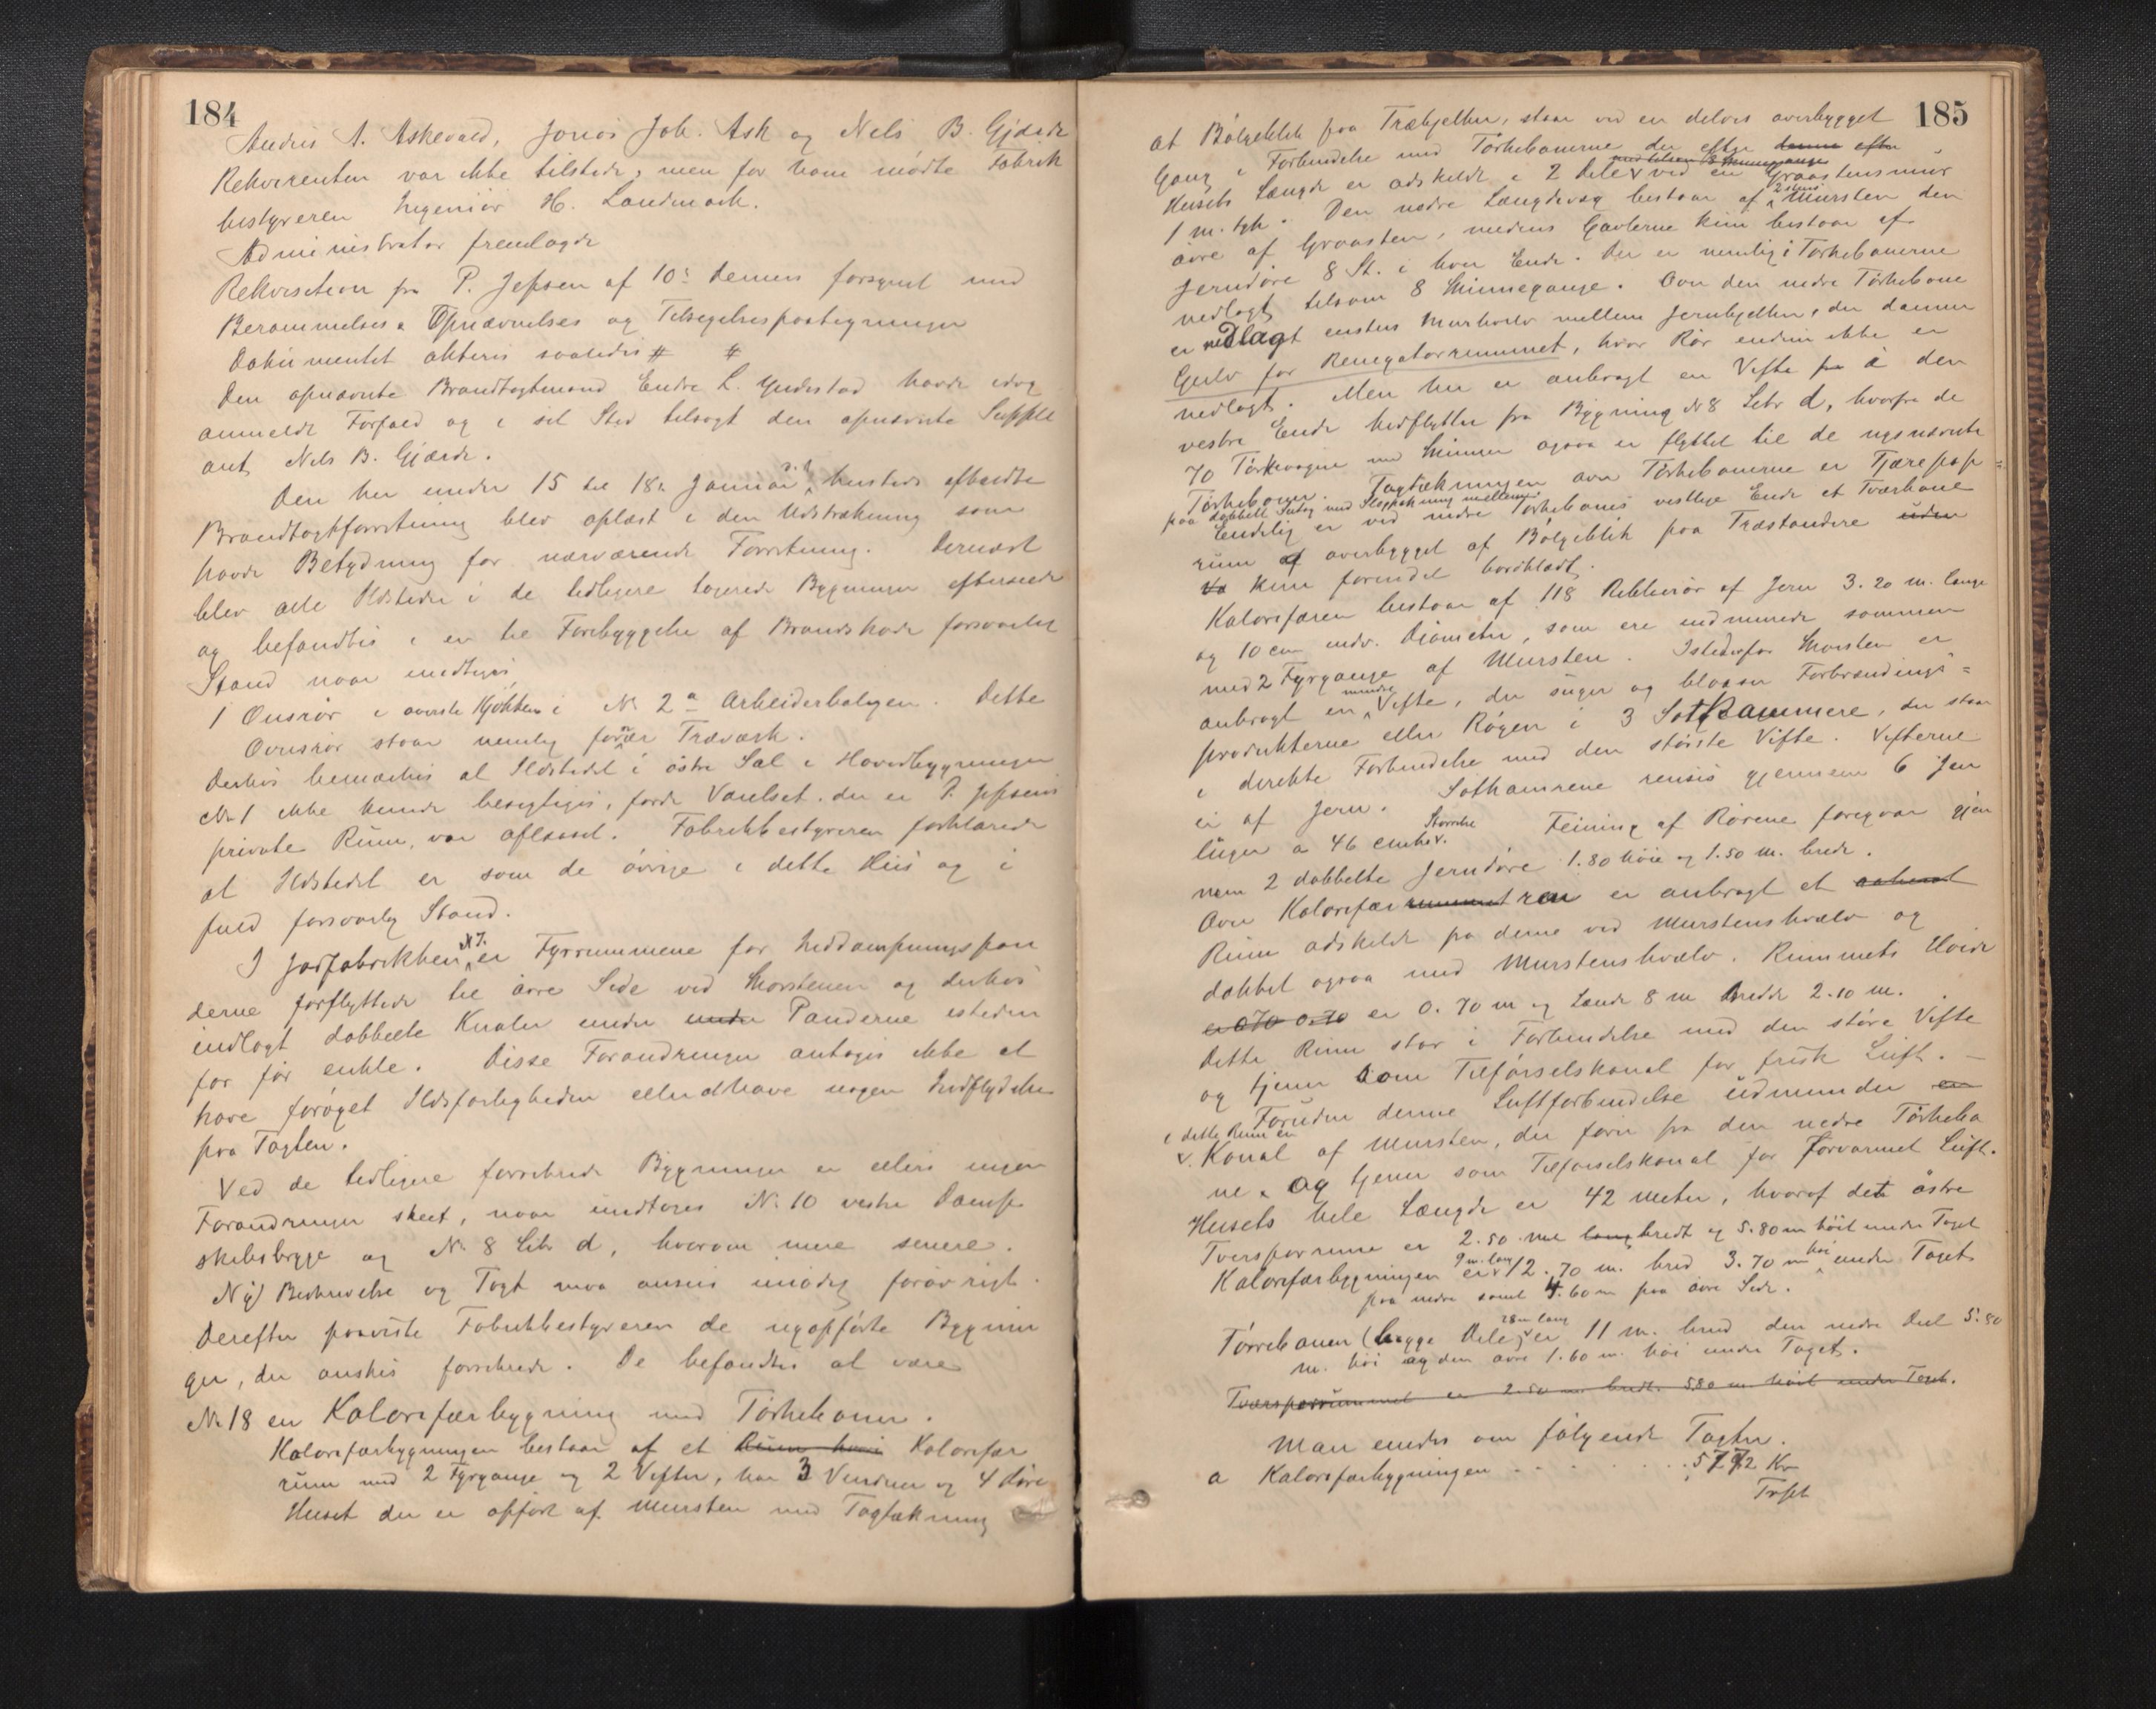 184
Andreas A. Askevold, Jonas Joh. Ask og Nels B. Gjærde
Rekvirenten var ikke tilstede, men for ham mødte Fabrik
bestyreren Ingeniør H. Landmark.
Administrator fremlagde
Rekvisition fra P. Jepsen af 10de dennes forsynet med
Berammelses- Opnævnelses og Tilsigelsespaategninger
Dokumentet akteres saaledes # #
Den opnævnte Brandtagtmand Endre L. Yndestad havde idag
anmeldt Forfald og i sit Sted tilsagt den opnævnte Supple
ant, Nels B. Gjærde.
Den her under 15 til 18de Januar d. A. husteds afholdte
Brandtagtforretning blev oplæst i den Udstrækning som
havde Betydning for nærværende Forretning. Dernæst
blev alle Ildsteder i de tidligere taxerede Bygninger efterseede
og befandtes i en til Forebyggelse af Brandskade forsvarlig
Stand naar undtages
1 Ovnsrør i øverste Kjøkken i No 2a Arbeiderboligen. Dette
Ovnsrør staar nemlig for nær Træværk.
Derhos bemærkes at Ildstedet i østre Sal i Hovedbygningen
No 1 ikke kunde besigtiges, fordi Værelset, der er P. Jepsens
private Rum, var aflaaset. Fabrikbestyreren forklarede
at Ildstedet er som de øvrige i dette Hus og i
fuld forsvarlig Stand.
I Jodfabrikken No 7. er Fyrrummene for Inddampningspan
derne forflyttede til øvre Side ved Skorstenen og derhos
indlagt dobbelte Kanaler under under Panderne isteden
for før enkle. Disse Forandringer antages ikke at
have forøget Ildsfarligheden eller at have nogen Indflydelse
paa Taxten.
Ved de tidligere forsikrede Bygninger er ellers ingen
Forandringer skeet, naar undtages No. 10 vestre Damp
skibsbrygge og No 8 Litr d, hvorom mere senere.
Ny Beskrivelse og Taxt maa ansees unødig forøvrigt.
Derefter paaviste Fabrikbestyreren de nyopførte Bygnin
ger, der ønskes forsikrede. De befandtes at være
No 18 en Kalorifærbygning med Tørkebaner.
Kalorifærbygningen bestaar af et Rum hvor Kalorifær
rum med 2 Fyrgange og 2 Vifter, har 3 Vinduer og 4 Døre
Huset der er opført af Mursten med Tagtækning
185
at Bølgeblik paa Træbjelker, staar ved en delvis overbygget
Gang i Forbindelse med Tørkebanerne der efter denne efter
med tilsam 8 Skinnegange
Husets Længde er adskildt i 2 Dele v ved en Graastensmur
1 m. tyk. Den nedre Længdevæg bestaar af 2 stens Mursten den
øvre af Graasten, medens Gavlerne kun bestaar af
Jerndøre 8 St. i hver Ende. Der er nemlig i Tørkebanerne
nedlagt tilsam 8 Skinnegange. Over den nedre Tørkebane
er nedlagt enstens Murhvelv mellem Jernbjelker, der danner
Gulv for Renegatorrummet, hvor Rør endnu ikke er
nedlagt. Men her er anbragt en Vifte fra i den
vestre Ende hidflyttet fra Bygning No 8 Litr d, hvorfra de
70 Tørkevogne med Skinner ogsaa er flyttet til de nysnævnte
Tørkebaner. Tagtækningen over Tørkebanerne er Tjærepap
paa dobbelt Sutag med Flispakning mellem.
Endelig er ved nedre Tørkebanes vestlige Ende et Tværbane
rum af overbygget af Bølgeblik paa Træstandere uden
Va kun forindet bordklædt.
Kalorifæren bestaar af 118 Ribberør af Jern 3.20 m. lange
og 10 cm indv. Diameter, som ere indmurede sammen
med 2 Fyrgange af Mursten. Istedetfor Skorsten er
anbragt en mindre Vifte, der suger og blæser Forbrændings=
produkterne eller Røgen i 3 Sotkammere, der staar
i direkte Forbindelse med den største Vifte. Vifterne
er af Jern. Sotkamrene renses gjennem 6 Jern
luger a 46 cm v. Størrelse Feining af Rørene foregaar gjen
nem 2 dobbelte Jerndøre 1.80 høie og 1.50 m. brede.
Over Kalorifærrummet ren er anbragt et aabent
Rum adskildt fra denne ved Murstenshvælv og
dækket ogsaa med Murstenshvælv. Rummets Høide
er 0.70 0.70 er 0.70 m og Længde 8 m Bredde 2.10 m.
Dette Rum staar i Forbindelse med den større Vifte
og tjener som Tilførselskanal for frisk Luft. —
Foruden denne Luftforbindelse udmunder en
i dette Rum en
v. Kanal af Mursten, der fører fra den nedre Tørkeba
ne, og tjener som Tilførselskanal for forvarmet Luft.
Husets hele Længde er 42 Meter, hvoraf det østre
Tversporrum er 2.50 m lang bredt og 5.80 m høit under Taget
Kalorifærbygningen er 9 m. lang v 12.70 m. bred 3.70 m høi under Taget
paa nedre samt 4.60 m paa øvre Side.
Tørrebanen (begge Dele) 28 m lang v er 11 m. bred den nedre Del 5.80
m. høi og den øvre 1.60 m. høi under Taget.
Tværsporrummet er 2.50 m. bredt. 5.80 m. høit under Taget.
Man enedes om følgende Taxter.
a Kalorifærbygningen . . . . . . . 5772 Kr
Trsp